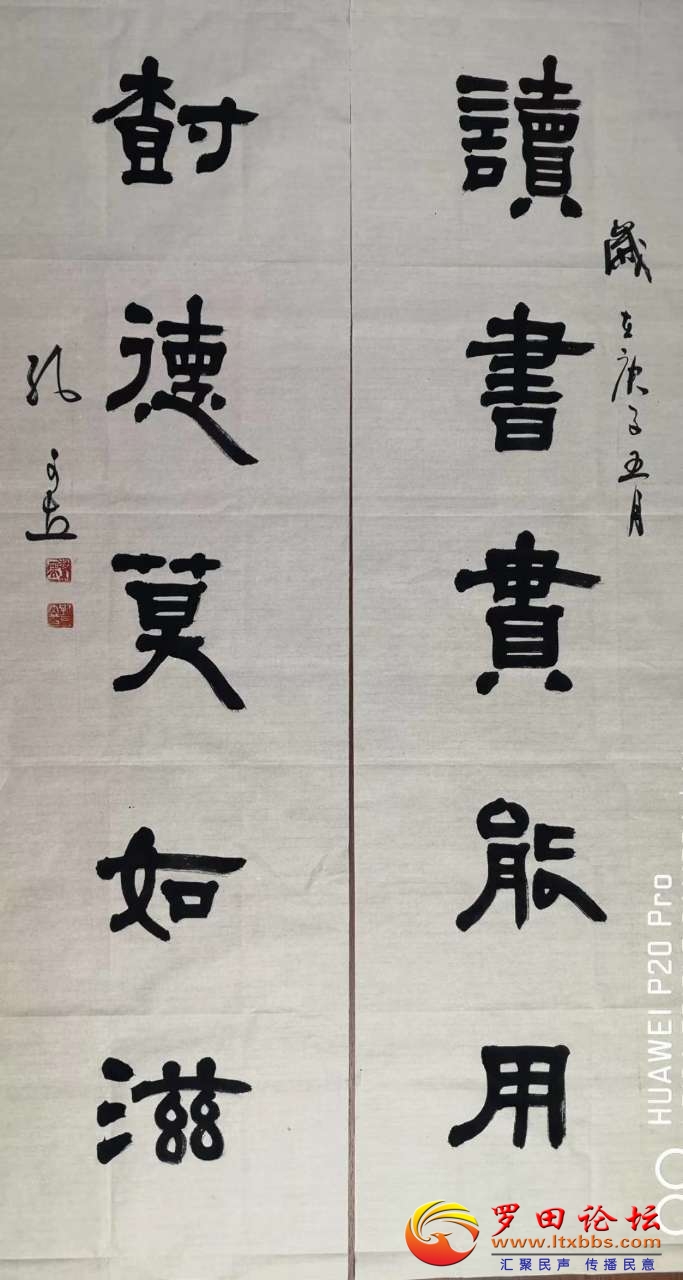 歲在庚子五月
讀書貴能用
樹德莫如滋
HUAWEI P20 Pro
罗田论坛
www.ltxbbs.com
汇聚民声 传播民意